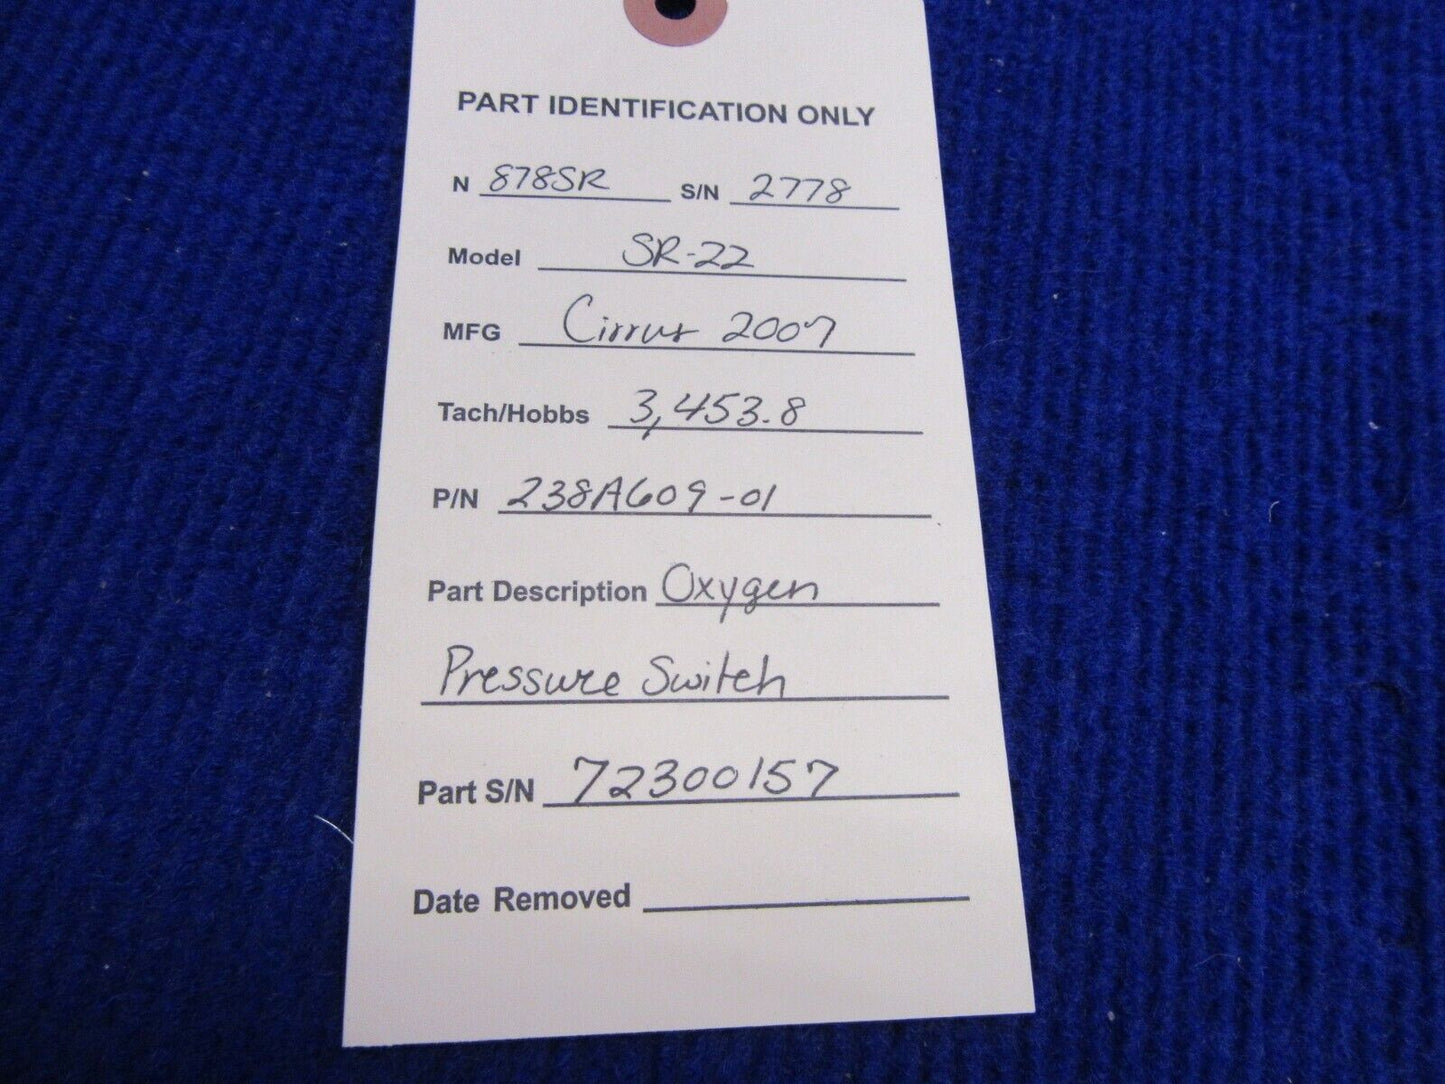 PART IDENTIFICATION ONLY
N 878SR S/N 2778
Model SR-22
MFG Cirrus 2007
Tach/Hobbs 3,453.8
P/N 238A609-01
Part Description Oxygen
Pressure Switch
Part S/N 72300157
Date Removed